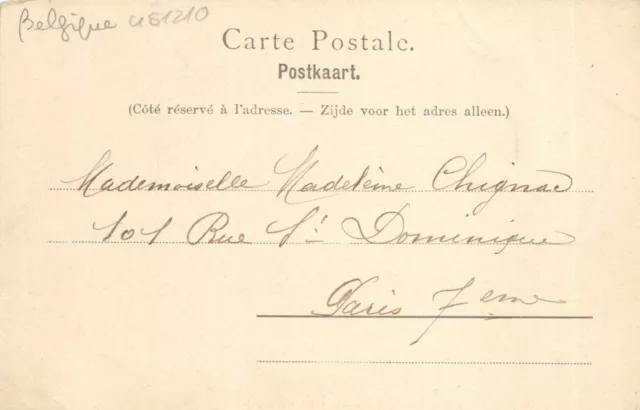 Belgique U61210
Carte Postale.
Postkaart.
(Côté réservé à l'adresse. — Zijde voor het adres alleen.)
Mademoiselle Madeleine Chignac
101 Rue St Dominique
Paris 7eme